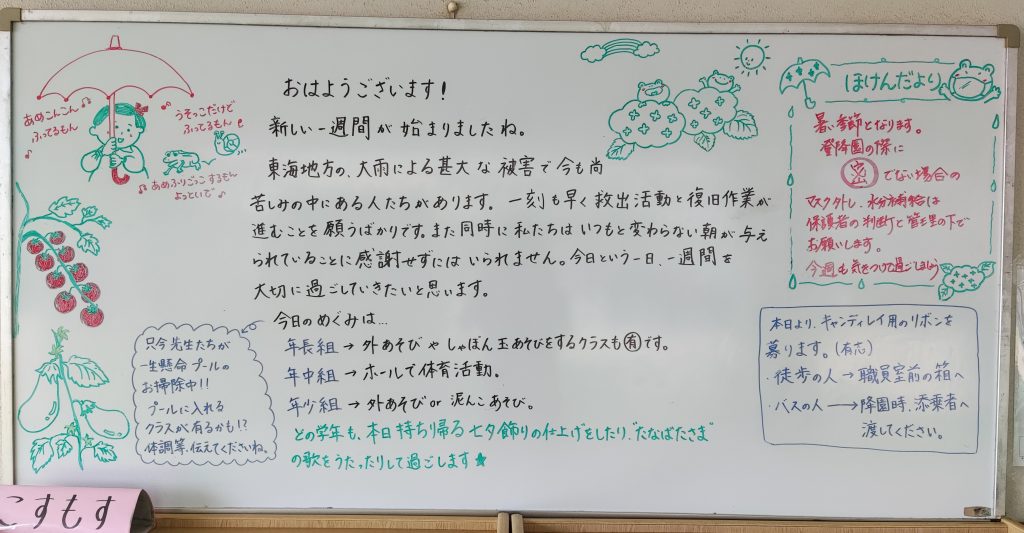 おはようございます!
新しい一週間が始まりましたね。
東海地方の、大雨による甚大な被害で今も尚
苦しみの中にある人たちがあります。一刻も早く救出活動と復旧作業が
進むことを願うばかりです。また同時に私たちはいつもと変わらない朝が与え
られていることに感謝せずにはいられません。今日という一日、一週間を
大切に過ごしていきたいと思います。
今日のめぐみは…
年長組→外あそびやしゃぼん玉あそびをするクラスも有です。
年中組→ホールで体育活動。
年少組→外あそびor泥んこあそび。
どの学年も、本日持ち帰る七夕飾りの仕上げをしたり、"たなばたさま"
の歌をうたったりして過ごします★
あめこんこん♪
ふってるもん
うそっこだけで
ふってるもん
♪あめふりごっこするもん
よっといで♪
只今先生たちが
一生懸命プールの
お掃除中!!
プールに入れる
クラスが有るかも!?
体調等、伝えてくださいね。
こすもす
ほけんだより
暑い季節となります。
登降園の際に
密でない場合の
マスク外し、水分補給は
保護者の判断と管理の下で
お願いします。
今週も気をつけて過ごしましょう
本日より、キャンディレイ用のリボンを
募ります。(有志)
・徒歩の人→職員室前の箱へ
・バスの人→降園時、添乗者へ
渡してください。